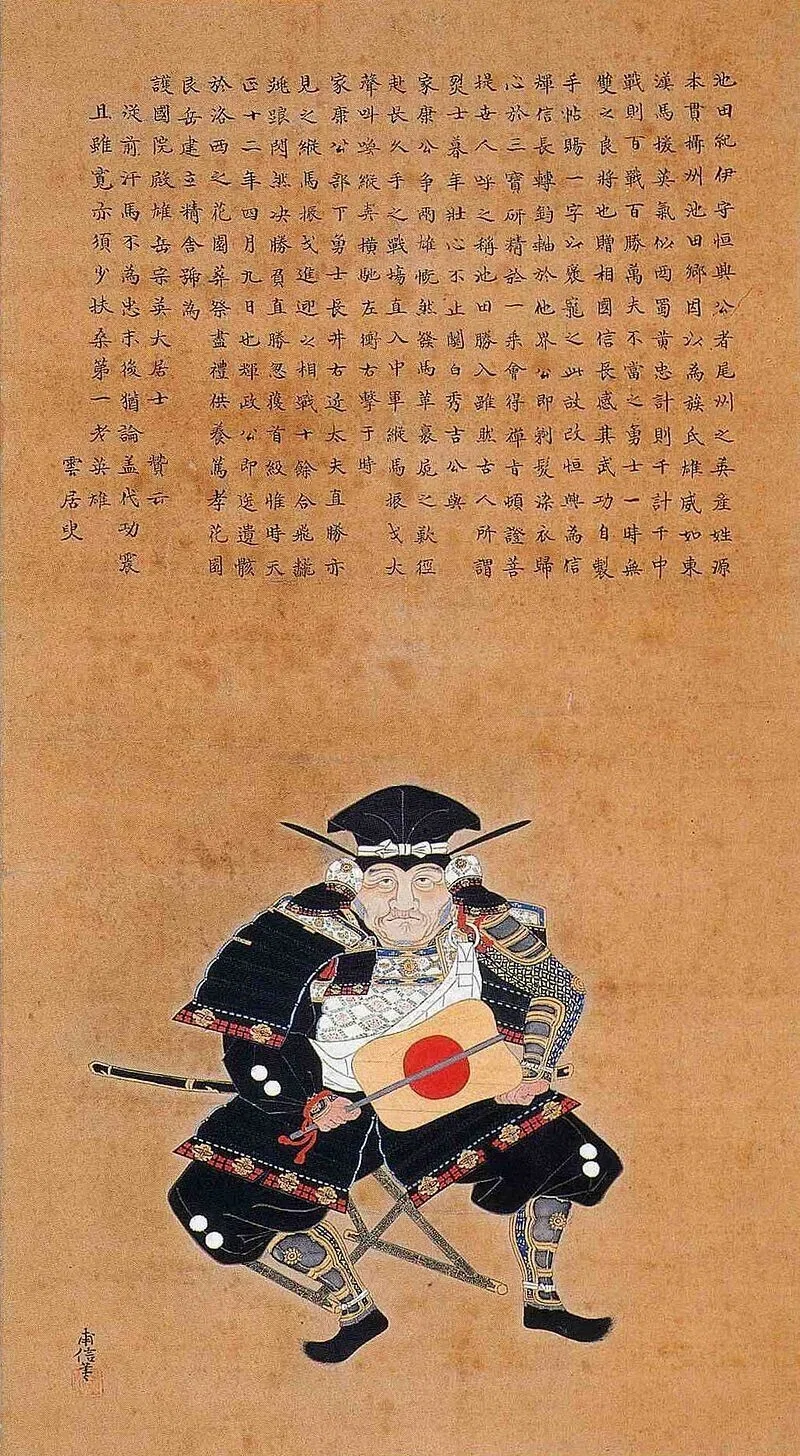 池田紀伊守恒興公者尾州之英産姓源
本貫攝州池田郷因以為族氏雄威如東
漢馬援英氣似西蜀黄忠計則千計千中
戰則百戰百勝萬夫不當之勇士一時無
雙之良将也贈相國信長感其武功自製
手帖賜一字以褒寵之此故改恒興為信
輝信長轉鈞軸於他界公即剃髪染衣歸
心於三寶研精於一乘會得禅旨頓證菩
提世人呼之称池田勝入雖然古人所謂
烈士暮年壮心不止關白秀吉公與
家康公争両雄慨然發馬革裹屍之歎徑
赴長久手之戰場直入中軍縦馬振戈大
聲叫喚縦奔横馳左衝右擊于時
家康公部下勇士長井右近太夫直勝亦
見之縦馬振戈進迎之相戰十餘合飛
跳踉閃然决勝負直勝忽獲首級惟時天
正十二年四月九日也輝政公即送遺骸
於洛西之花園葬祭盡禮供養薦孝花園
艮岳建立精舎諦為
護國院殿雄岳宗英大居士 贊云
従前汗馬不為忠末後猶論盖代功震
且雖寛亦須少扶桑第一老英雄
雲居叟
甫信筆